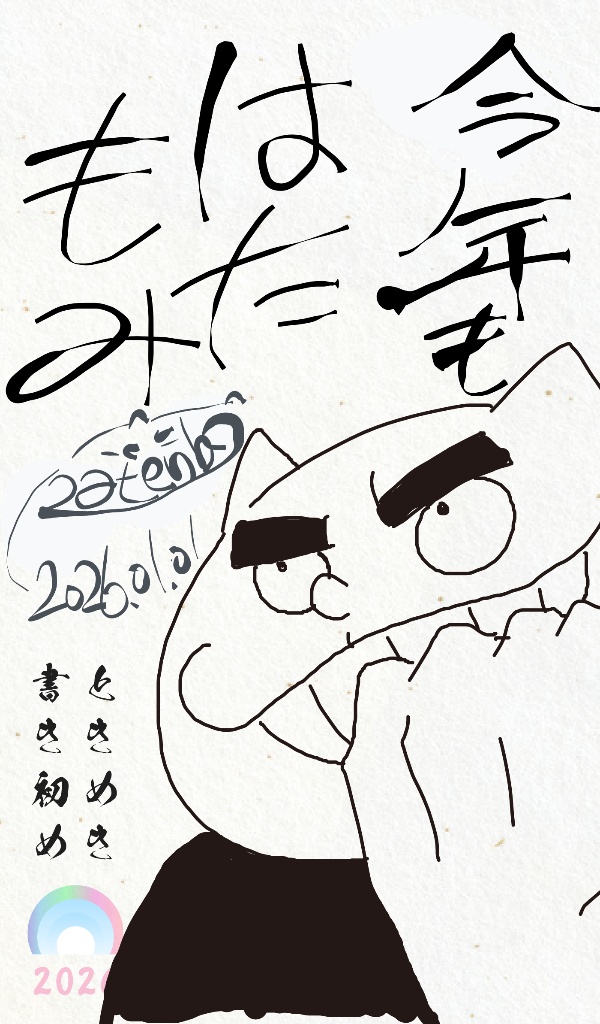 今年も
はた
もみ
zatenbo
2026.01.01
ときめき
書き初め
2026